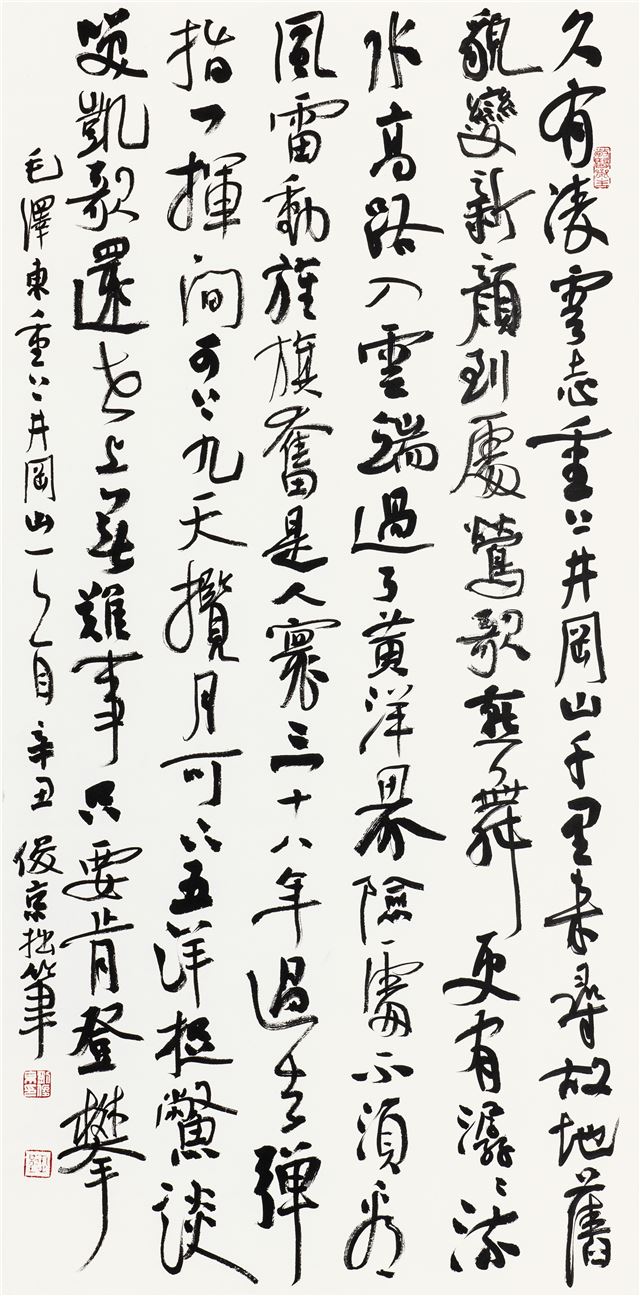 久有凌雲志重上井岡山千里來尋故地舊
貌變新顏到處鶯歌燕舞更有潺潺流
水高路入雲端過了黃洋界險處不須看
風雷動旌旗奮是人寰三十八年過去彈
指一揮間可上九天攬月可下五洋捉鱉談
笑凱歌還世上無難事只要肯登攀
毛澤東重上井岡山辛丑俊京拙筆